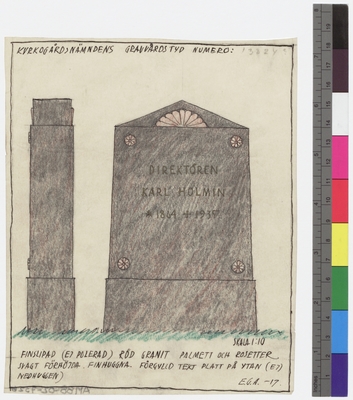 KYRKOGÅRDSNÄMNDENS GRAVVÅRDSTYP NUMERO:
DIREKTÖREN
KARL HOLMIN
* 1864 † 1937
SKALA 1:10
FINSLIPAD (EJ POLERAD) RÖD GRANIT PALMETT OCH ROSETTER
SVAGT FÖRHÖJDA FINHUGGNA. FÖRGYLLD TEXT PLATT PÅ YTAN (EJ
NEDHUGGEN)
E.G.A. -17.